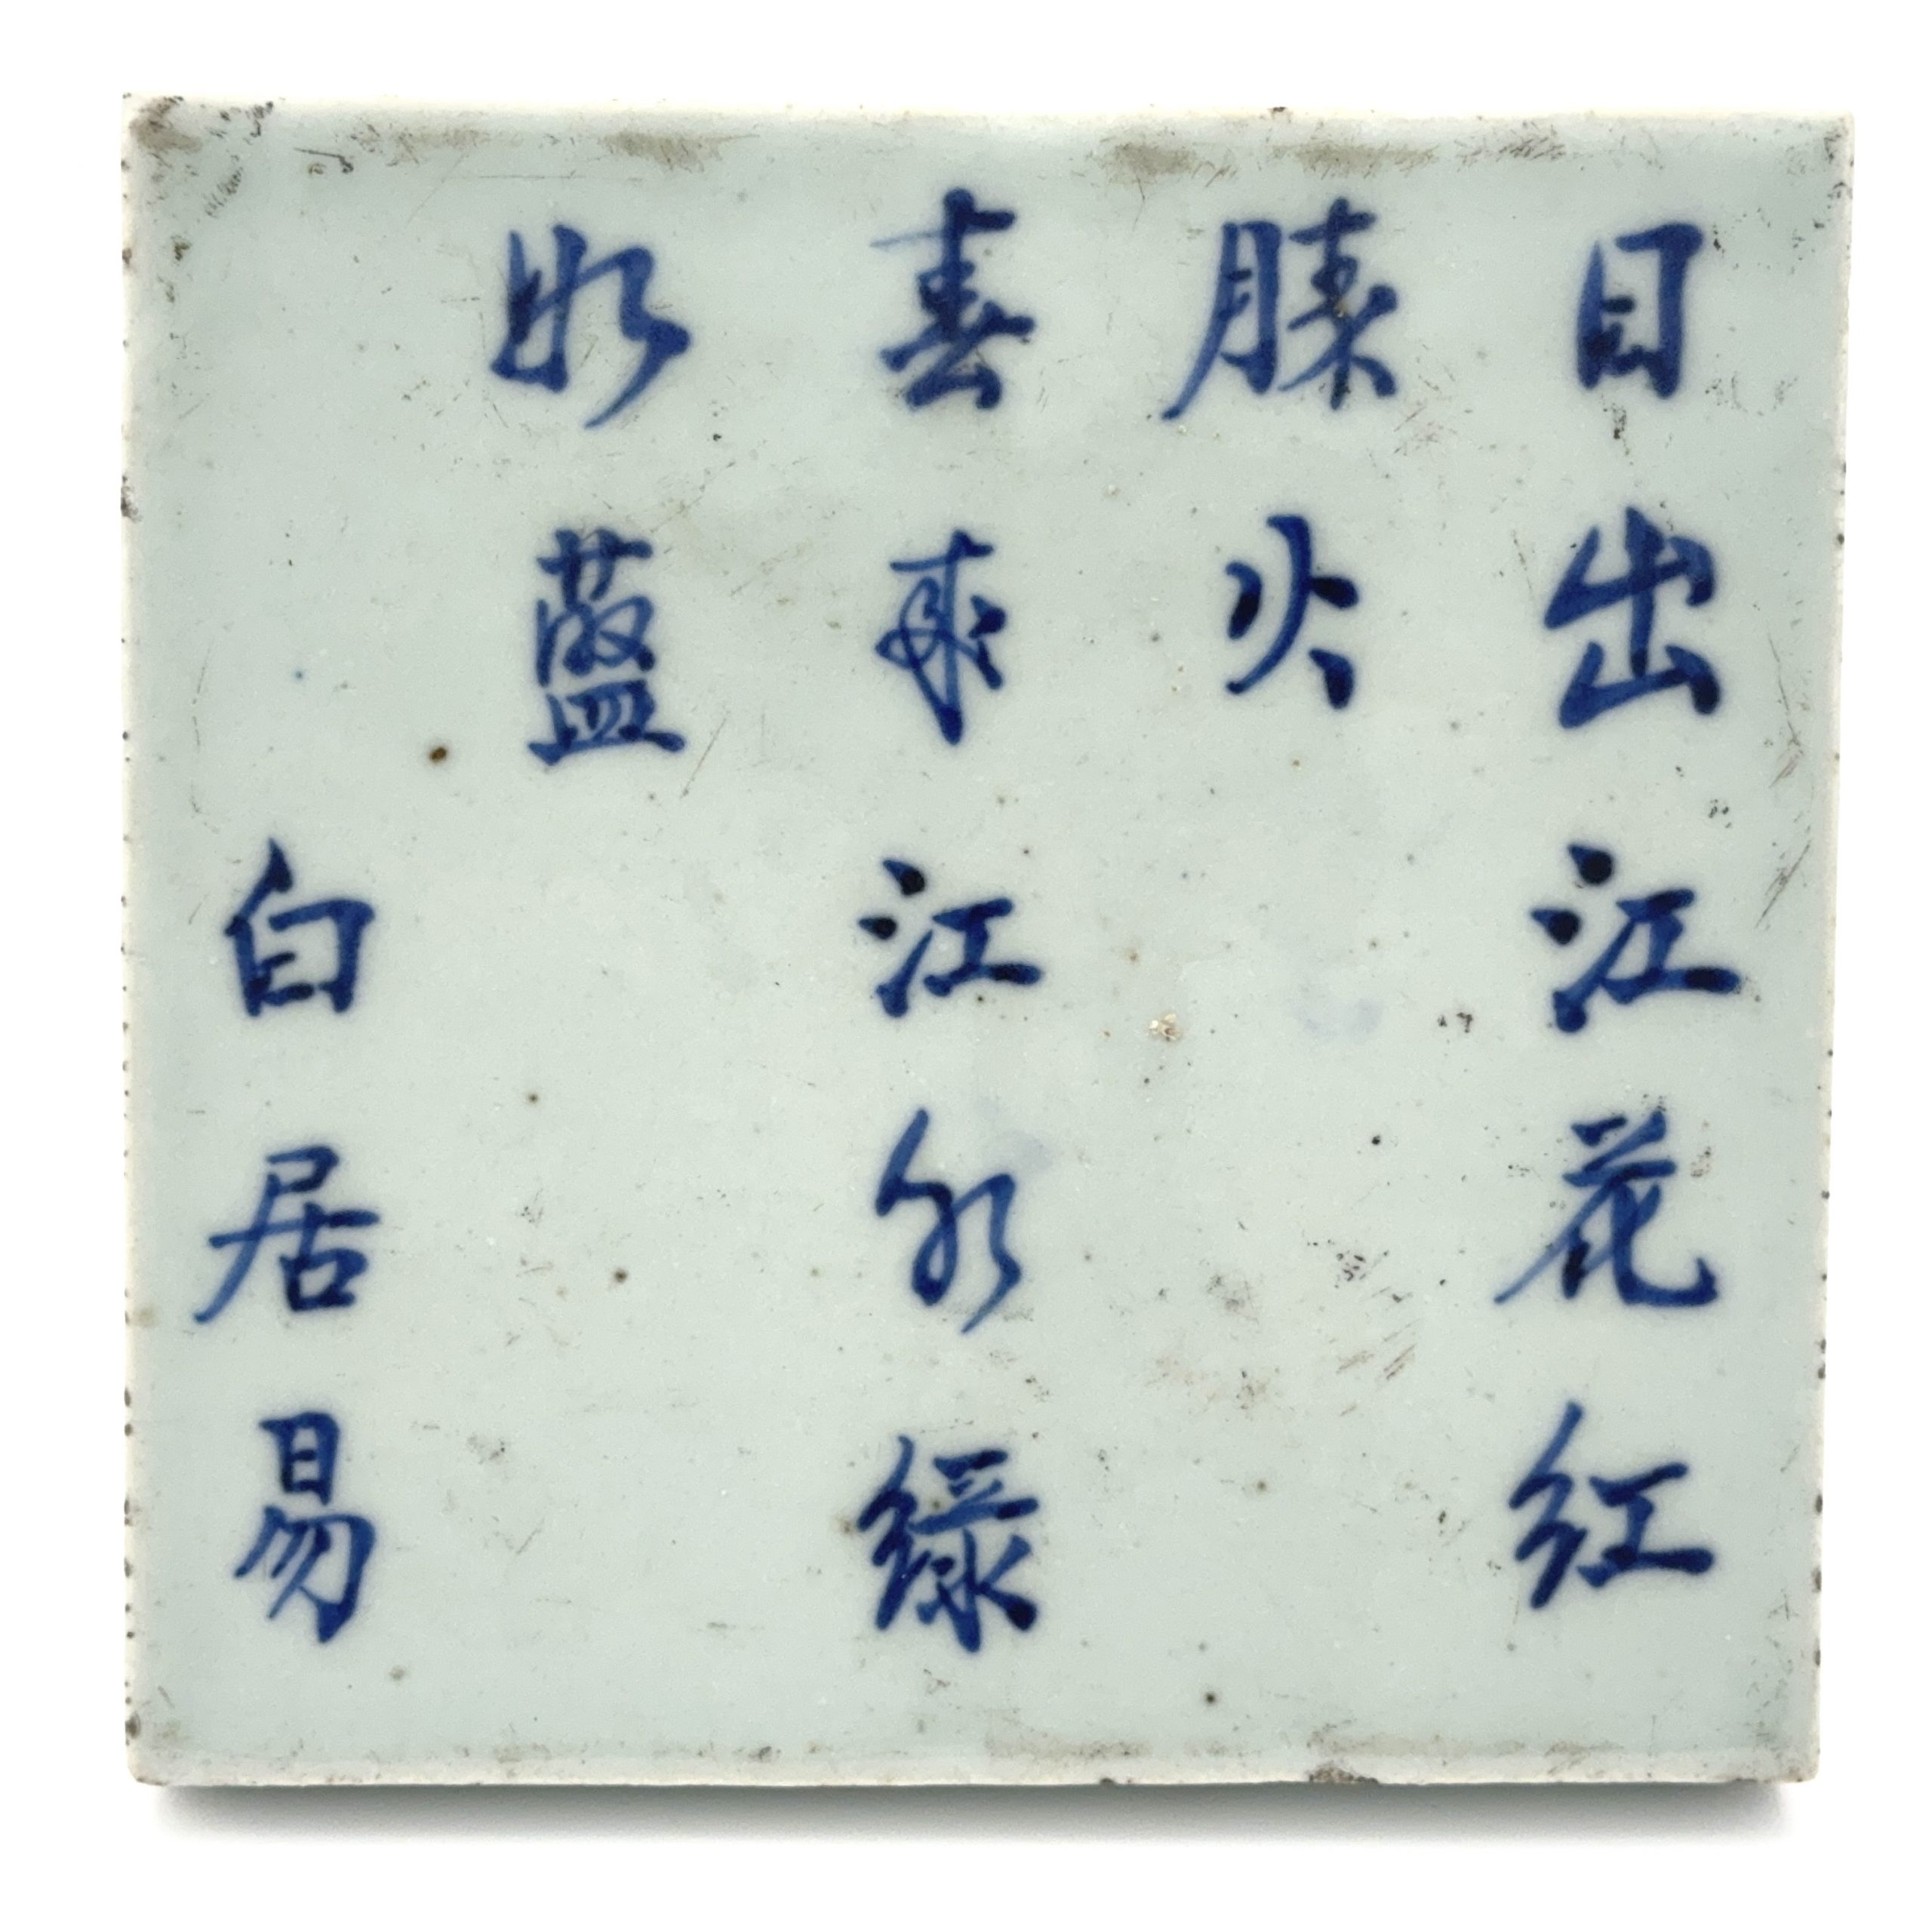 日出江花紅
勝火
春來江水綠
如藍
白居易